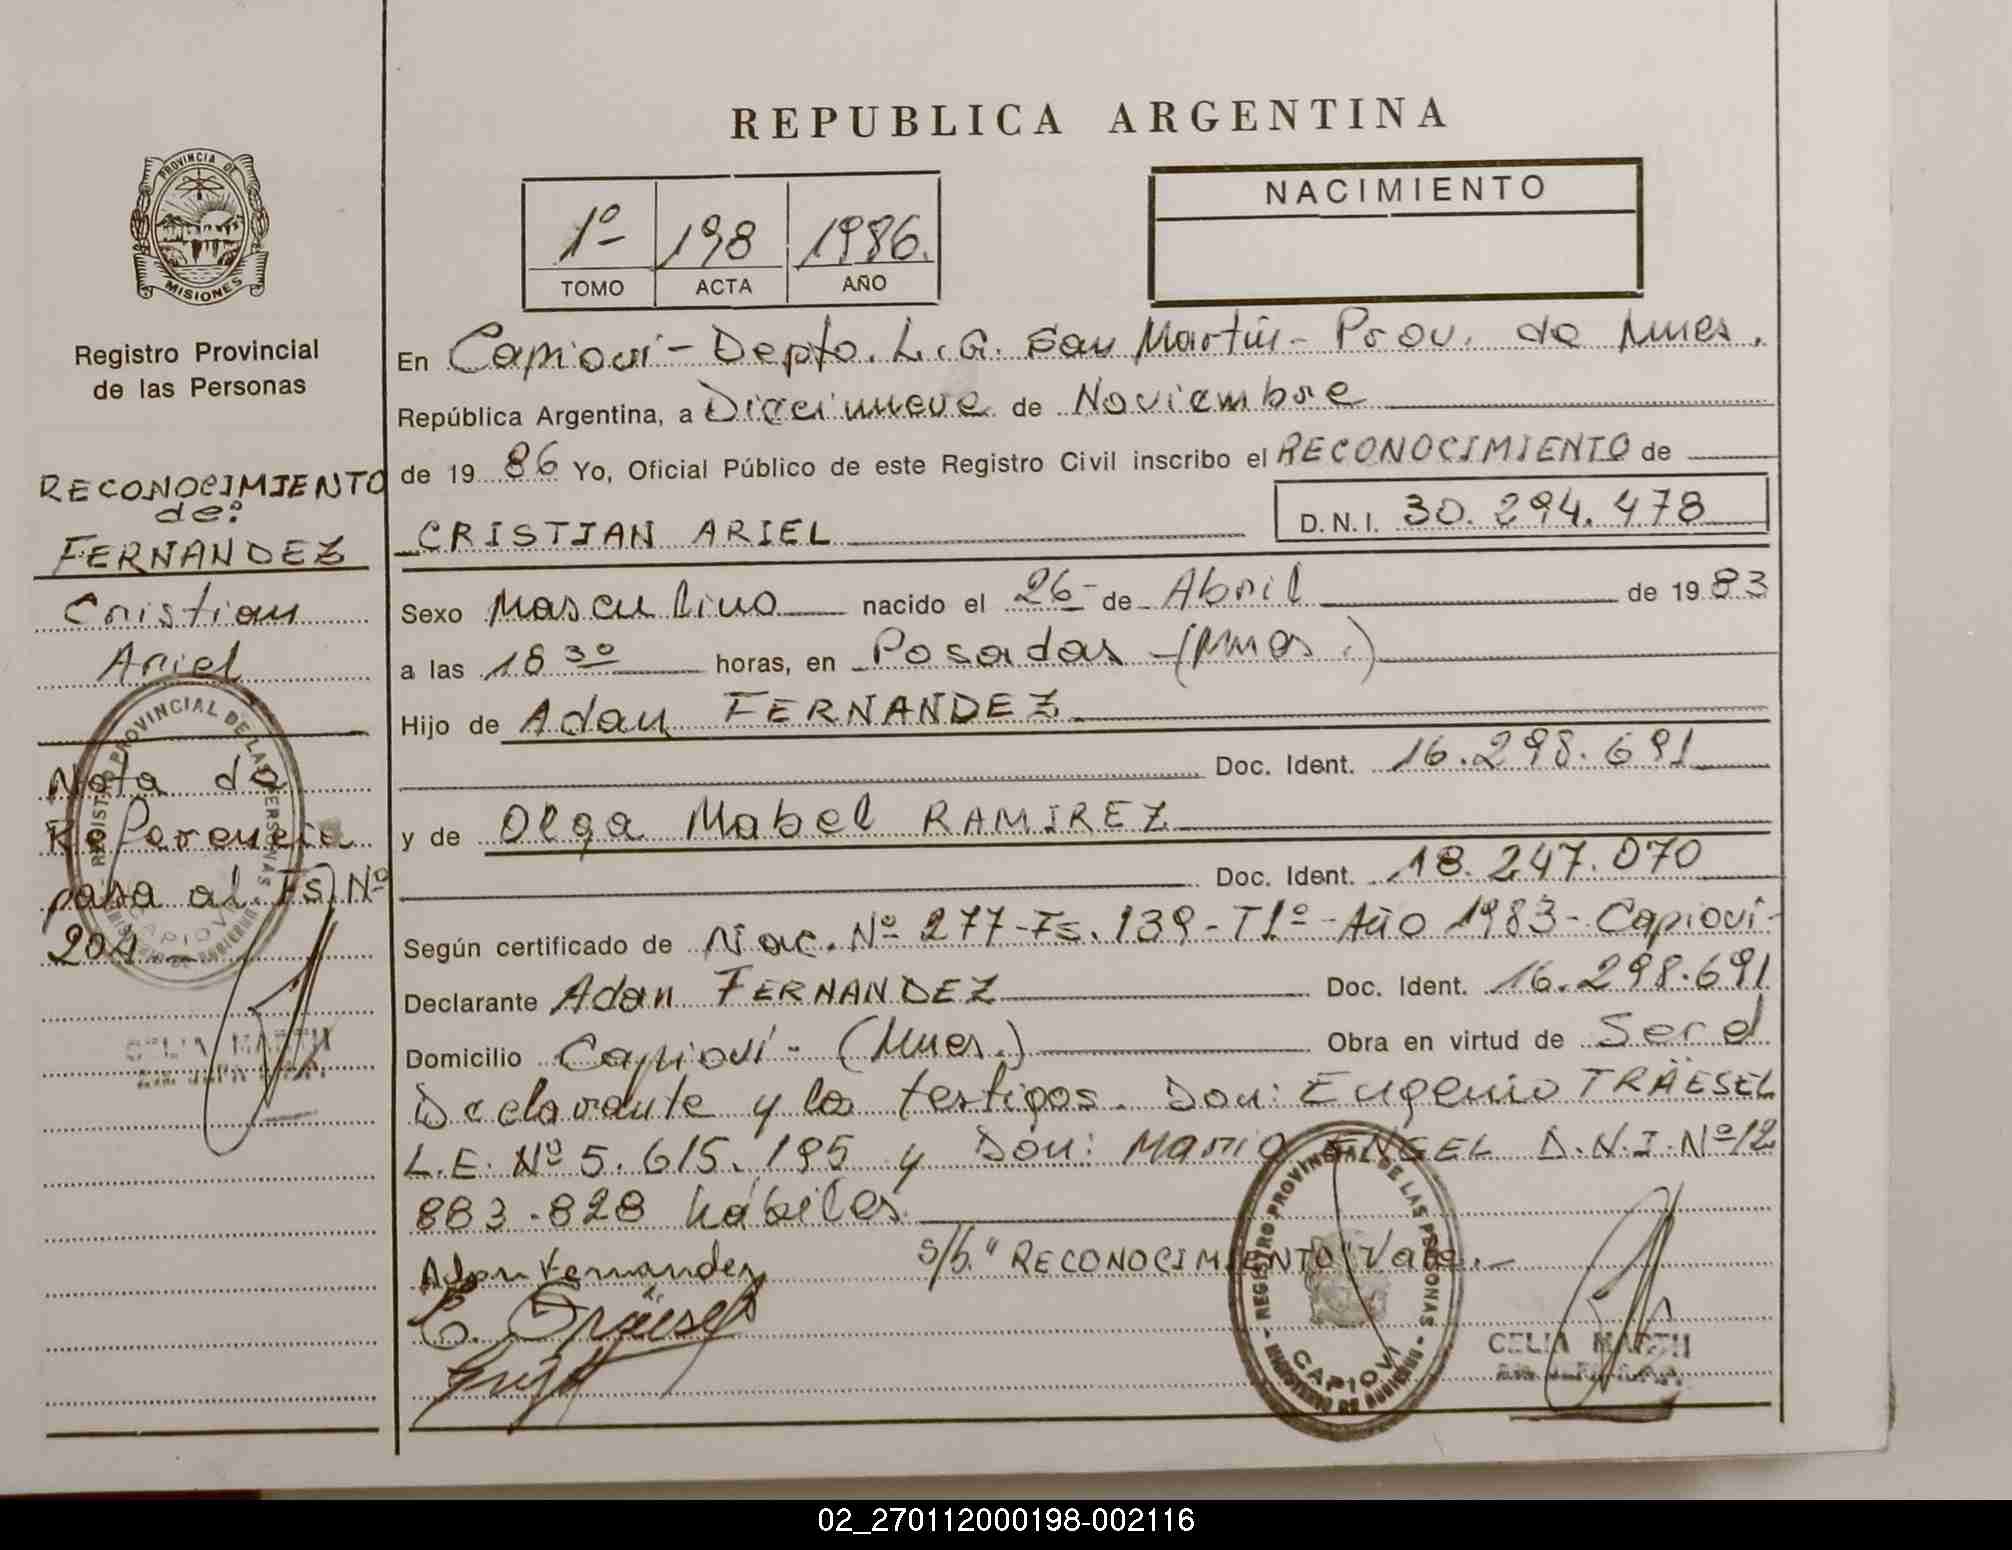 REPUBLICA ARGENTINA
PROVINCIA DE
MISIONES
Registro Provincial
de las Personas
1º 198 1986.
TOMO ACTA AÑO
NACIMIENTO
RECONOCIMIENTO
de:
FERNANDEZ
Cristian
Ariel
Nota de
Referencia
pasa al Fs. Nº
204
REGISTRO PROVINCIAL DE LAS PERSONAS
CAPIOVI
CELIA MARTH
En Capioví - Depto. L. G. San Martín - Prov. de Mnes.
República Argentina, a Diecinueve de Noviembre
de 19 86 Yo, Oficial Público de este Registro Civil inscribo el RECONOCIMIENTO de
CRISTIAN ARIEL D.N.I. 30.294.478
Sexo Masculino nacido el 26 - de Abril de 19 83
a las 18 30 horas, en Posadas - (Mnes.)
Hijo de Adan FERNANDEZ
Doc. Ident. 16.298.691
y de Olga Mabel RAMIREZ
Doc. Ident. 18.247.070
Según certificado de Nac. Nº 277 - Fs. 139 - T1º - Año 1983 - Capioví -
Declarante Adan FERNANDEZ Doc. Ident. 16.298.691
Domicilio Capioví - (Mnes.) Obra en virtud de Ser el
Declarante y los testigos. Don: Eugenio TRÄESEL
L.E. Nº 5.615.195 y Don: Mario ENGEL D.N.I. Nº 12
883.828 hábiles.
s/b. "RECONOCIMIENTO" Vale.-
Adan Fernandez
E. Träesel
REGISTRO PROVINCIAL DE LAS PERSONAS
CAPIOVI
CELIA MARTH
02_270112000198-002116